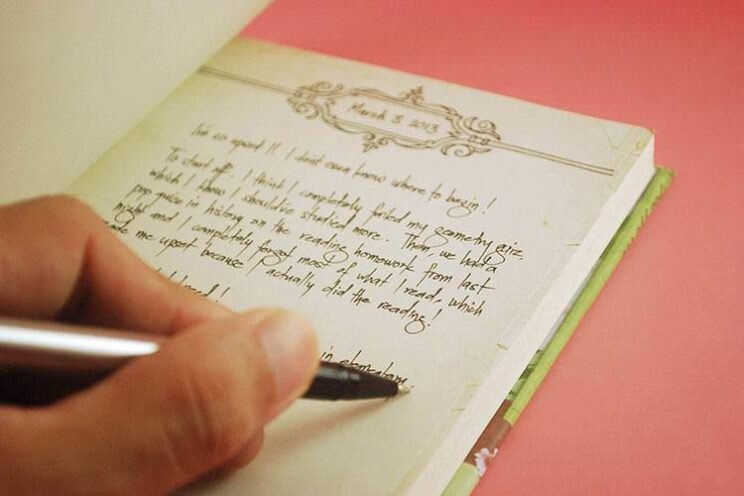 March 3, 2013
I'm so upset!! I don't even know where to begin!
To start off, I think I completely failed my geometry quiz,
which I know I should've studied more. Then, we had a
pop quiz in history on the reading homework from last
night and I completely forgot most of what I read, which
made me upset because I actually did the reading!
in elementary